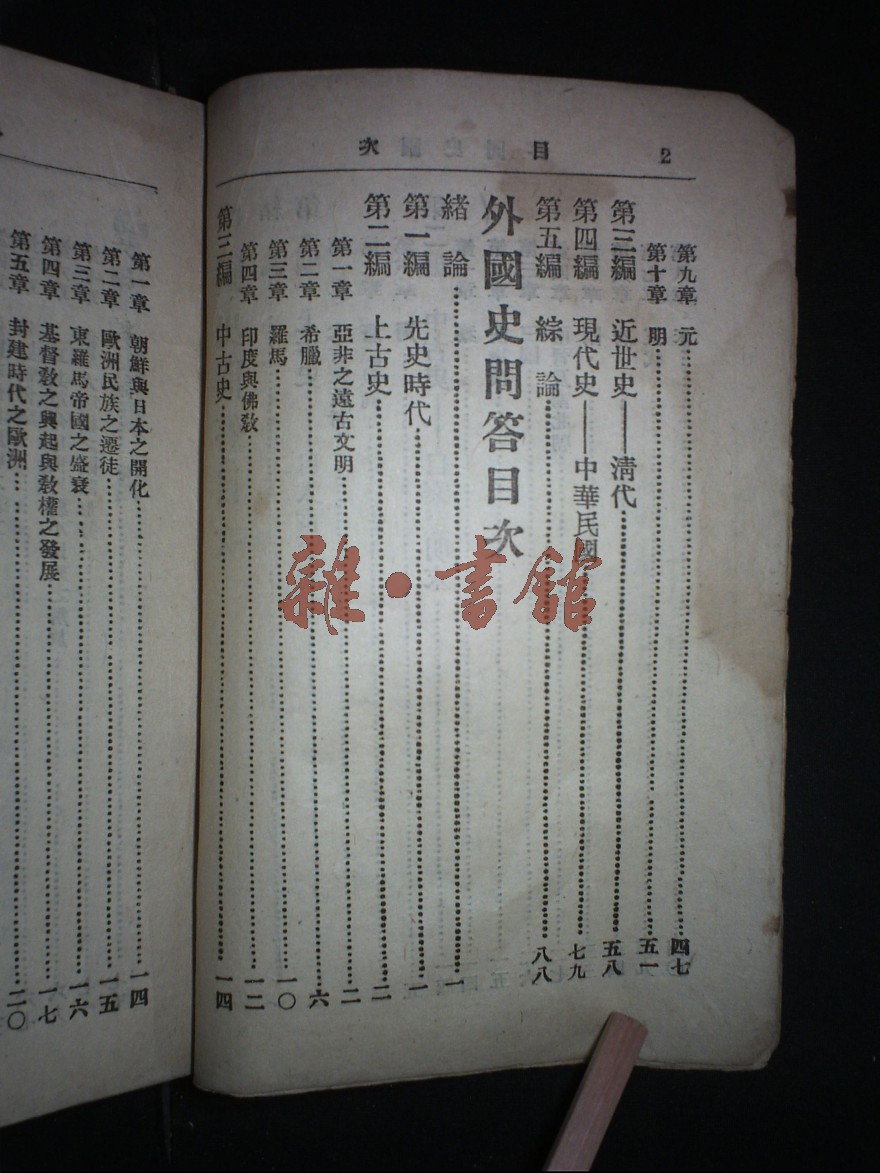 2 目次
第九章 元……四七
第十章 明……五一
第三編 近世史——淸代……五八
第四編 現代史——中華民國……七九
第五編 綜論……八八
外國史問答目次
緒論……一
第一編 先史時代……一
第二編 上古史……二
第一章 亞非之遠古文明……二
第二章 希臘……六
第三章 羅馬……一〇
第四章 印度與佛敎……一二
第三編 中古史……一四
第一章 朝鮮與日本之開化……一四
第二章 歐洲民族之遷徒……一五
第三章 東羅馬帝國之盛衰……一六
第四章 基督敎之興起與敎權之發展……一七
第五章 封建時代之歐洲……二〇
雜·書館